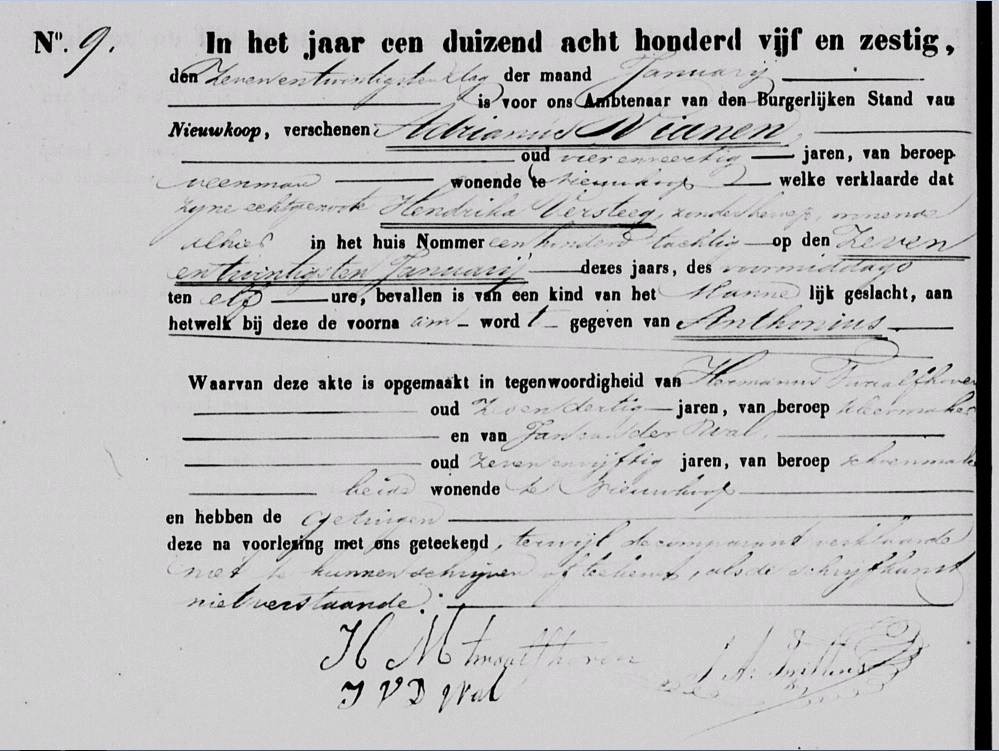 N°. 9. In het jaar een duizend acht honderd vijf en zestig,
den Zevenentwintigsten dag der maand Januarij
is voor ons Ambtenaar van den Burgerlijken Stand van
Nieuwkoop, verschenen Adrianus Vianen,
oud vier en veertig jaren, van beroep
veenman wonende te Nieuwkoop welke verklaarde dat
zyne echtgenoote Hendrika Versteeg, zonder beroep, wonende
alhier in het huis Nommer een honderd tachtig op den Zeven
entwintigsten Januarij dezes jaars, des voormiddags
ten elf ure, bevallen is van een kind van het Manne lijk geslacht, aan
hetwelk bij deze de voorna am word t gegeven van Anthonius
Waarvan deze akte is opgemaakt in tegenwoordigheid van Hermanus Twaalfhoven
oud Zevendertig jaren, van beroep kleermaker
en van Jan van der Wal,
oud Zevenenvijftig jaren, van beroep schoenmaker
beide wonende te Nieuwkoop
en hebben de Getuigen
deze na voorlezing met ons geteekend, terwijl de comparant verklaarde
niet te kunnen schrijven of teekenen, als de schrijfkunst
niet verstaande.
H M Twaalfhoven
J V D Wal